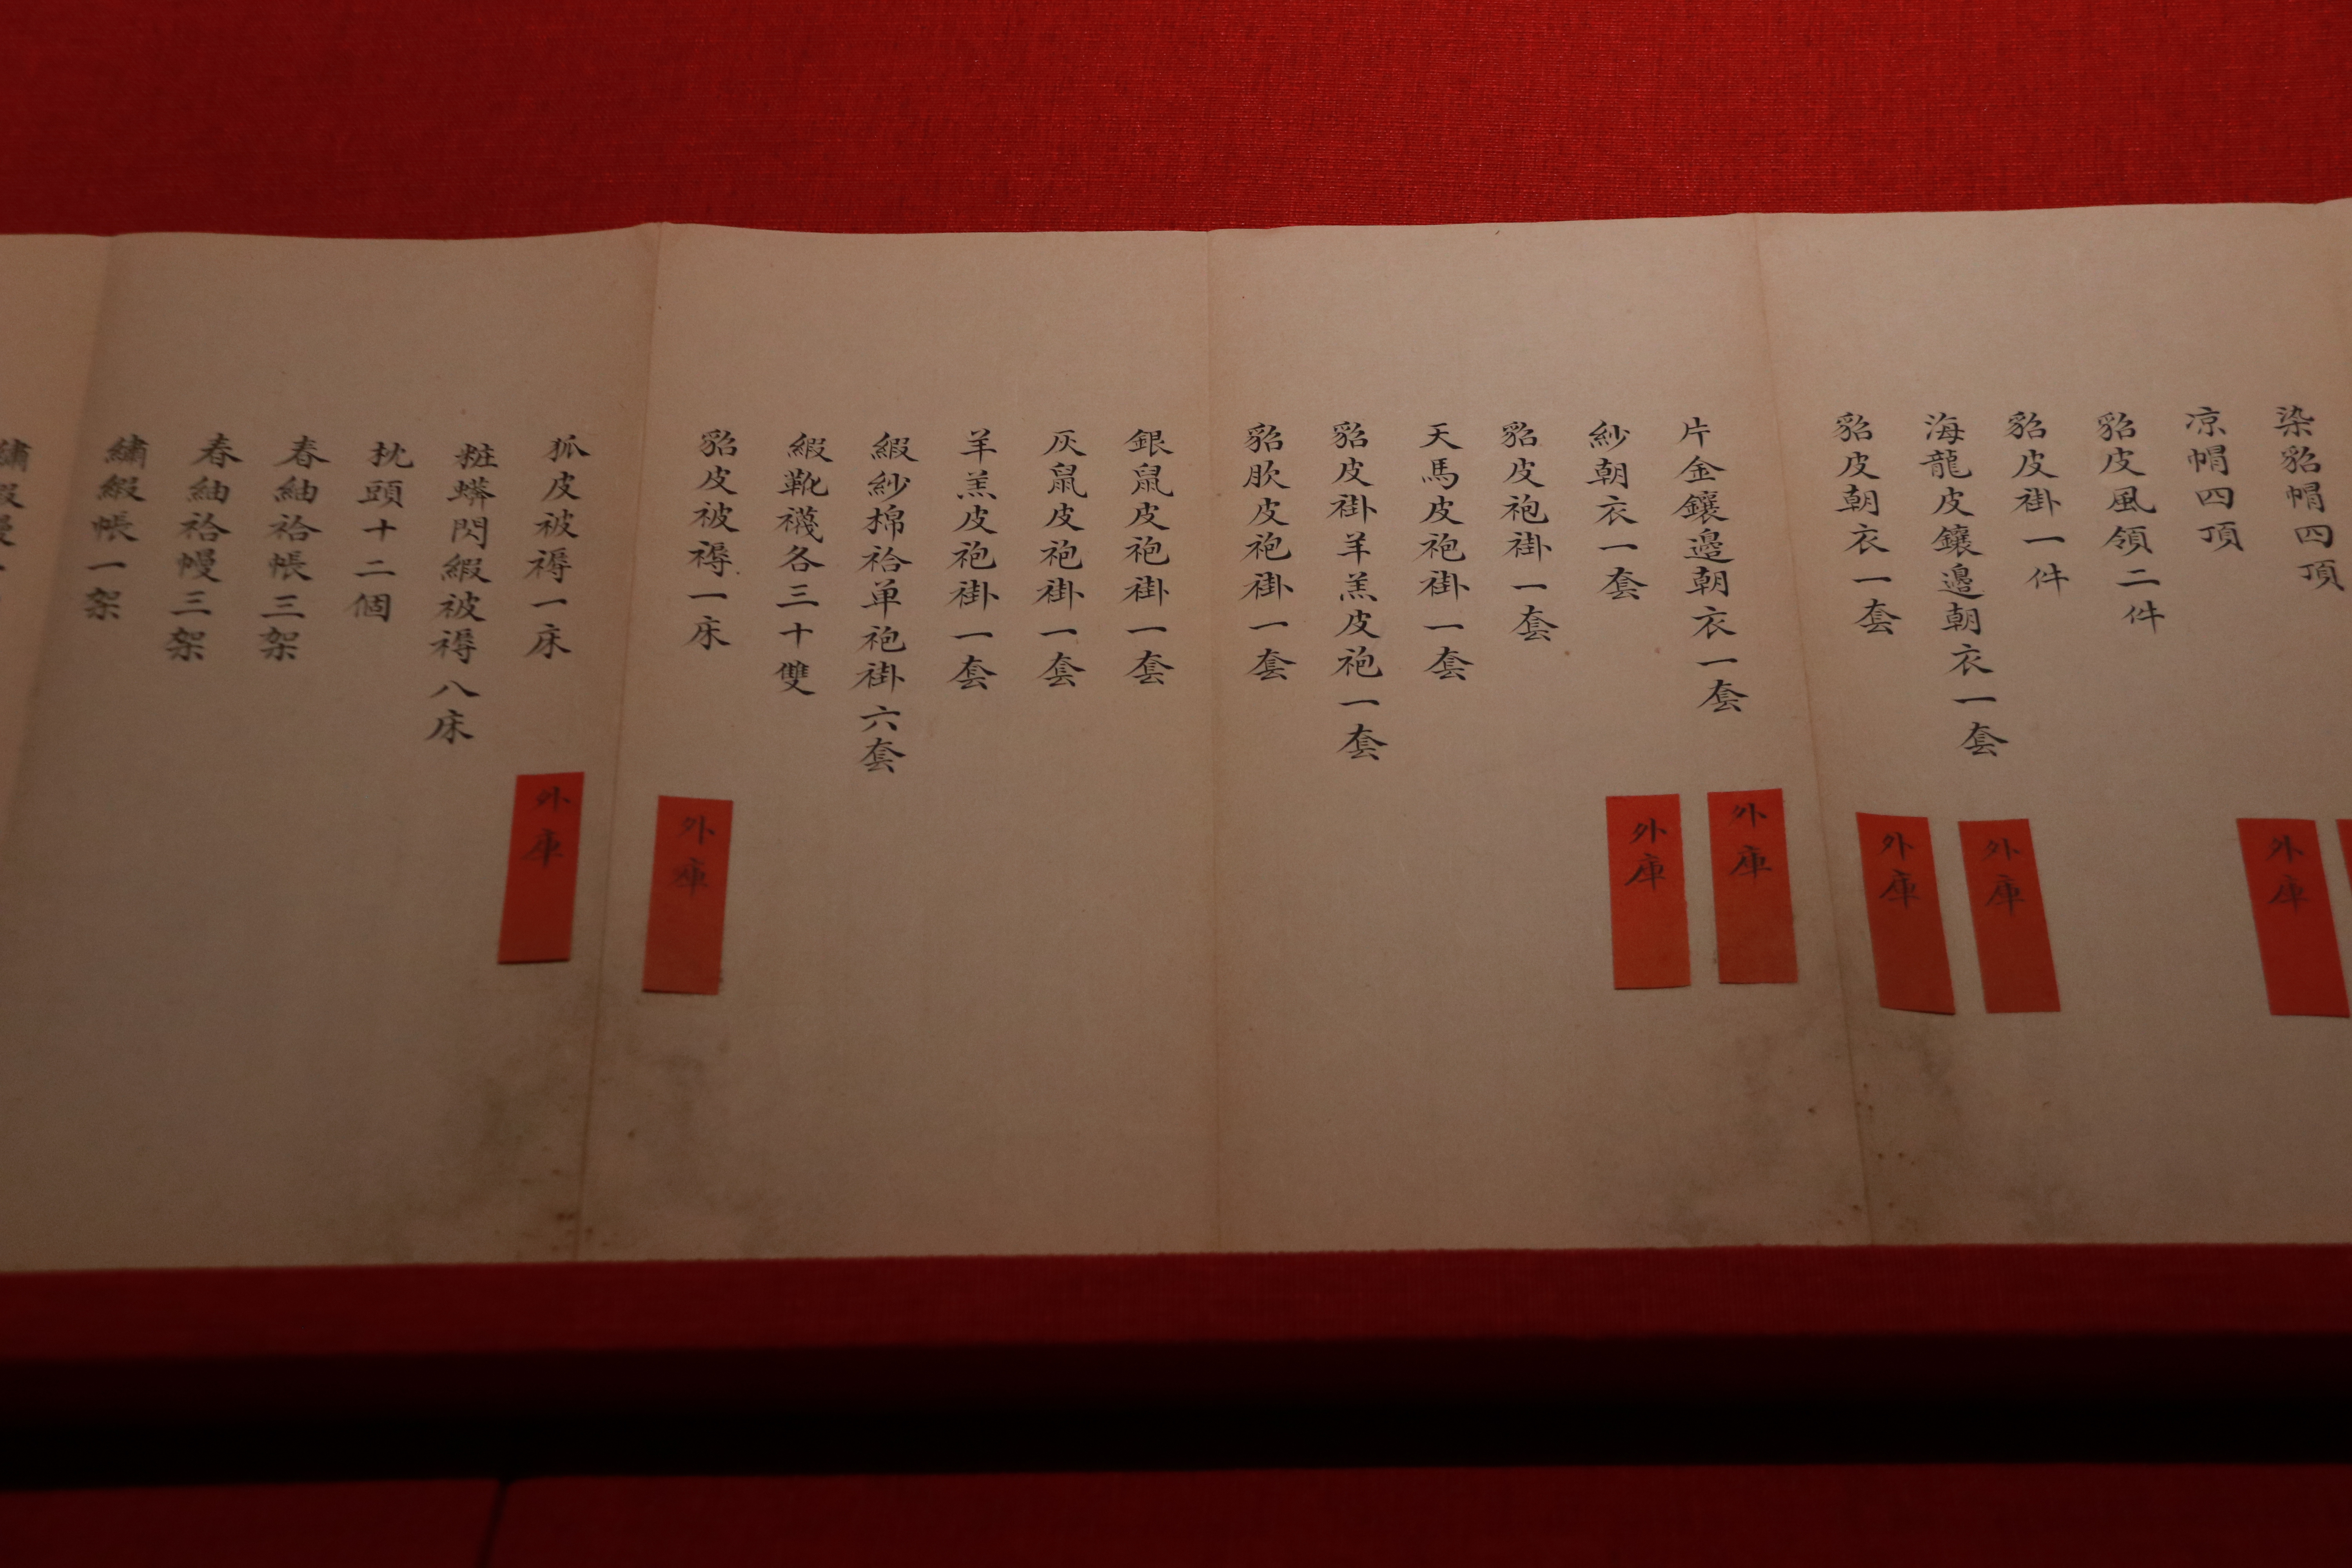 染貂帽四頂
凉帽四頂
外庫
貂皮風領二件
貂皮褂一件
海龍皮鑲邊朝衣一套
外庫
貂皮朝衣一套
外庫
片金鑲邊朝衣一套
外庫
紗朝衣一套
外庫
貂皮袍褂一套
天馬皮袍褂一套
貂皮褂羊羔皮袍一套
貂肷皮袍褂一套
銀鼠皮袍褂一套
灰鼠皮袍褂一套
羊羔皮袍褂一套
緞紗棉袷单袍褂六套
緞靴襪各三十雙
貂皮被褥一床
外庫
狐皮被褥一床
外庫
粧蟒閃緞被褥八床
枕頭十二個
春紬袷帳三架
春紬袷幔三架
繡緞帳一架